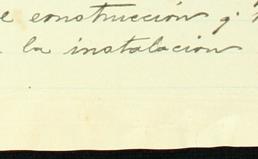 e construcción q.
la instalación